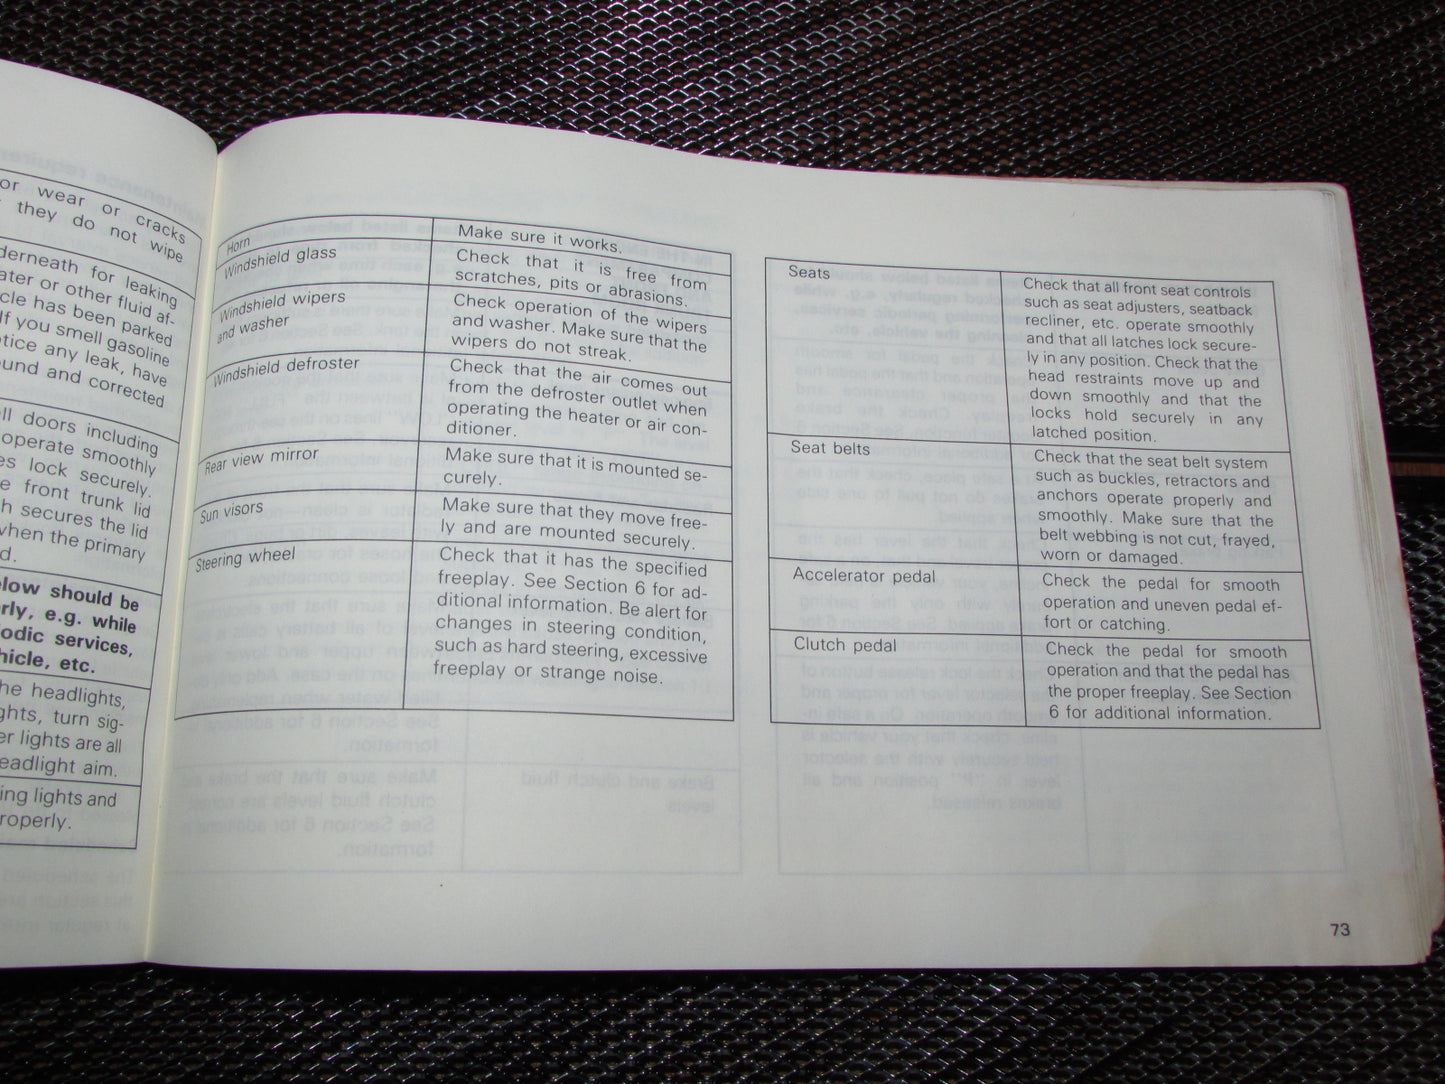 or wear or cracks
they do not wipe
derneath for leaking
ater or other fluid af-
cle has been parked
If you smell gasoline
tice any leak, have
und and corrected
ll doors including
operate smoothly
es lock securely.
e front trunk lid
h secures the lid
when the primary
d.
elow should be
rly, e.g. while
iodic services,
hicle, etc.
he headlights,
ghts, turn sig-
er lights are all
eadlight aim.
ing lights and
roperly.
Horn
Make sure it works.
Windshield glass
Check that it is free from
scratches, pits or abrasions.
Windshield wipers
and washer
Check operation of the wipers
and washer. Make sure that the
wipers do not streak.
Windshield defroster
Check that the air comes out
from the defroster outlet when
operating the heater or air con-
ditioner.
Rear view mirror
Make sure that it is mounted se-
curely.
Sun visors
Make sure that they move free-
ly and are mounted securely.
Steering wheel
Check that it has the specified
freeplay. See Section 6 for ad-
ditional information. Be alert for
changes in steering condition,
such as hard steering, excessive
freeplay or strange noise.
Seats
Check that all front seat controls
such as seat adjusters, seatback
recliner, etc. operate smoothly
and that all latches lock secure-
ly in any position. Check that the
head restraints move up and
down smoothly and that the
locks hold securely in any
latched position.
Seat belts
Check that the seat belt system
such as buckles, retractors and
anchors operate properly and
smoothly. Make sure that the
belt webbing is not cut, frayed,
worn or damaged.
Accelerator pedal
Check the pedal for smooth
operation and uneven pedal ef-
fort or catching.
Clutch pedal
Check the pedal for smooth
operation and that the pedal has
the proper freeplay. See Section
6 for additional information.
73